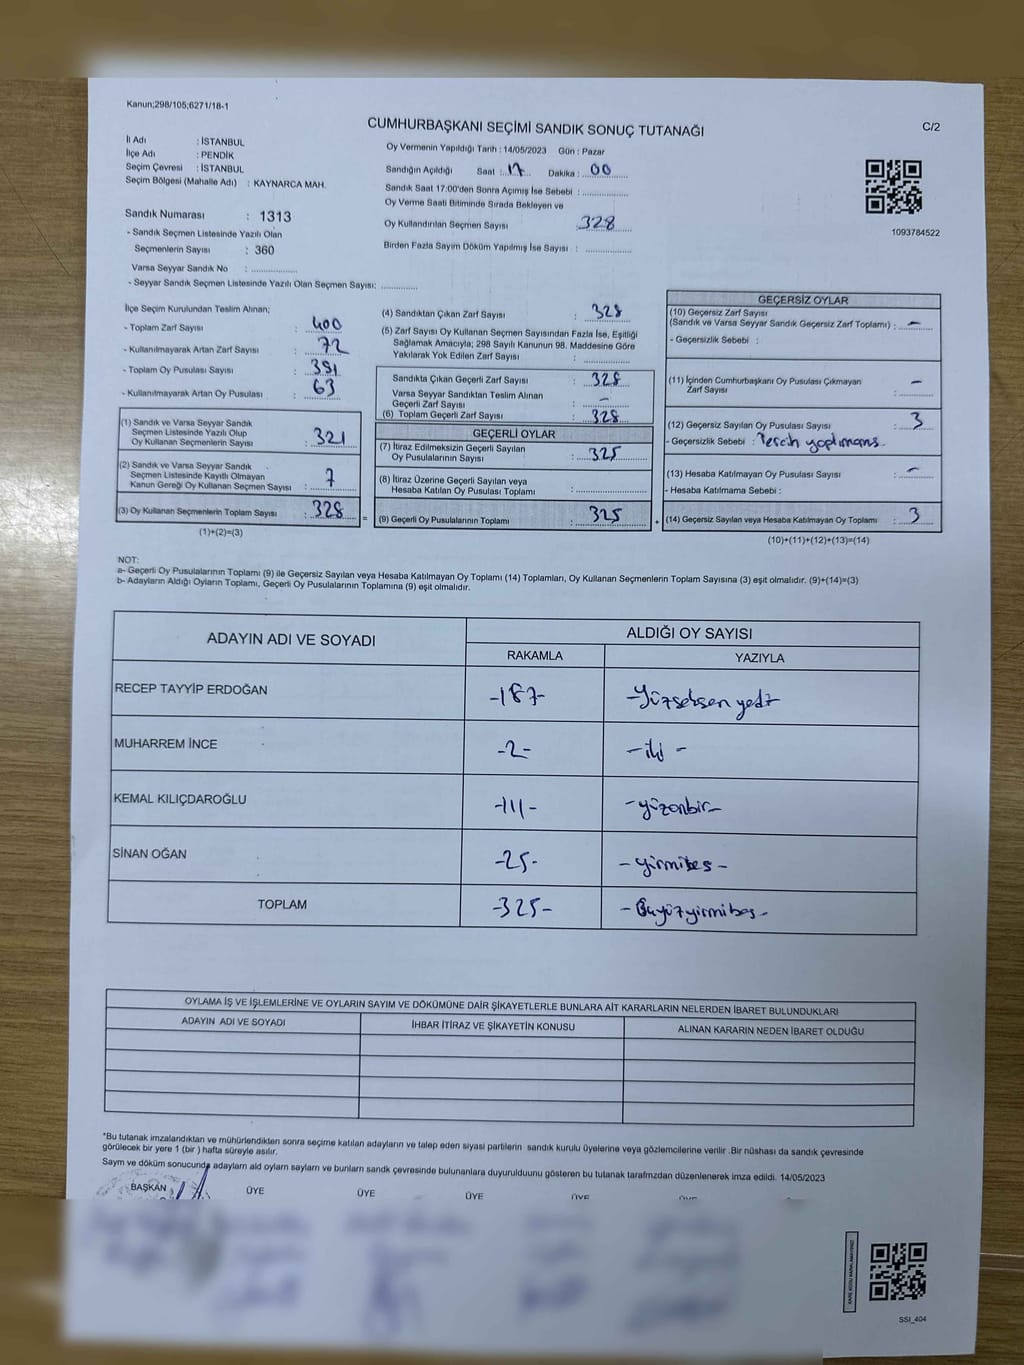 Kanun;298/105;6271/18-1
CUMHURBAŞKANI SEÇİMİ SANDIK SONUÇ TUTANAĞI
C/2
İl Adı : İSTANBUL
İlçe Adı : PENDİK
Seçim Çevresi : İSTANBUL
Seçim Bölgesi (Mahalle Adı) : KAYNARCA MAH.
Sandık Numarası : 1313
- Sandık Seçmen Listesinde Yazılı Olan
Seçmenlerin Sayısı : 360
Varsa Seyyar Sandık No : ..............
- Seyyar Sandık Seçmen Listesinde Yazılı Olan Seçmen Sayısı: ............
Oy Vermenin Yapıldığı Tarih : 14/05/2023 Gün : Pazar
Sandığın Açıldığı Saat : 17 Dakika : 00
Sandık Saat 17:00'den Sonra Açımış İse Sebebi : ..............
Oy Verme Saati Bitiminde Sırada Bekleyen ve
Oy Kullandırılan Seçmen Sayısı 328
Birden Fazla Sayım Döküm Yapılmış İse Sayısı : ..............
1093784522
İlçe Seçim Kurulundan Teslim Alınan;
- Toplam Zarf Sayısı : 400
- Kullanılmayarak Artan Zarf Sayısı : 72
- Toplam Oy Pusulası Sayısı : 391
- Kullanılmayarak Artan Oy Pusulası : 63
(1) Sandık ve Varsa Seyyar Sandık
Seçmen Listesinde Yazılı Olup
Oy Kullanan Seçmenlerin Sayısı : 321
(2) Sandık ve Varsa Seyyar Sandık
Seçmen Listesinde Kayıtlı Olmayan
Kanun Gereği Oy Kullanan Seçmen Sayısı : 7
(3) Oy Kullanan Seçmenlerin Toplam Sayısı : 328
(1)+(2)=(3)
=
(4) Sandıktan Çıkan Zarf Sayısı : 328
(5) Zarf Sayısı Oy Kullanan Seçmen Sayısından Fazla İse, Eşitliği
Sağlamak Amacıyla; 298 Sayılı Kanunun 98. Maddesine Göre
Yakılarak Yok Edilen Zarf Sayısı : ..............
Sandıkta Çıkan Geçerli Zarf Sayısı : 328
Varsa Seyyar Sandıktan Teslim Alınan
Geçerli Zarf Sayısı : -
(6) Toplam Geçerli Zarf Sayısı : 328
GEÇERLİ OYLAR
(7) İtiraz Edilmeksizin Geçerli Sayılan
Oy Pusulalarının Sayısı : 325
(8) İtiraz Üzerine Geçerli Sayılan veya
Hesaba Katılan Oy Pusulası Toplamı : ..............
(9) Geçerli Oy Pusulalarının Toplamı : 325
+
GEÇERSİZ OYLAR
(10) Geçersiz Zarf Sayısı
(Sandık ve Varsa Seyyar Sandık Geçersiz Zarf Toplamı) : -
- Geçersizlik Sebebi :
(11) İçinden Cumhurbaşkanı Oy Pusulası Çıkmayan -
Zarf Sayısı :
(12) Geçersiz Sayılan Oy Pusulası Sayısı : 3
- Geçersizlik Sebebi : Tercih yapılmamış
(13) Hesaba Katılmayan Oy Pusulası Sayısı : -
- Hesaba Katılmama Sebebi :
(14) Geçersiz Sayılan veya Hesaba Katılmayan Oy Toplamı : 3
(10)+(11)+(12)+(13)=(14)
NOT:
a- Geçerli Oy Pusulalarının Toplamı (9) ile Geçersiz Sayılan veya Hesaba Katılmayan Oy Toplamı (14) Toplamları, Oy Kullanan Seçmenlerin Toplam Sayısına (3) eşit olmalıdır. (9)+(14)=(3)
b- Adayların Aldığı Oyların Toplamı, Geçerli Oy Pusulalarının Toplamına (9) eşit olmalıdır.
ADAYIN ADI VE SOYADI
ALDIĞI OY SAYISI
RAKAMLA
YAZIYLA
RECEP TAYYİP ERDOĞAN -187- -Yüzseksen yedi
MUHARREM İNCE -2- -iki -
KEMAL KILIÇDAROĞLU -111- -yüzonbir-
SİNAN OĞAN -25- -yirmibeş-
TOPLAM -325- -Üçyüzyirmibeş-
OYLAMA İŞ VE İŞLEMLERİNE VE OYLARIN SAYIM VE DÖKÜMÜNE DAİR ŞİKAYETLERLE BUNLARA AİT KARARLARIN NELERDEN İBARET BULUNDUKLARI
ADAYIN ADI VE SOYADI
İHBAR İTİRAZ VE ŞİKAYETİN KONUSU
ALINAN KARARIN NEDEN İBARET OLDUĞU
*Bu tutanak imzalandıktan ve mühürlendikten sonra seçime katılan adayların ve talep eden siyasi partilerin sandık kurulu üyelerine veya gözlemcilerine verilir .Bir nüshası da sandık çevresinde
görülecek bir yere 1 (bir ) hafta süreyle asılır.
Saym ve döküm sonucunda adaylarn ald oylarn saylarn ve bunlarn sandk çevresinde bulunanlara duyurulduunu gösteren bu tutanak tarafmzdan düzenlenerek imza edildi. 14/05/2023
BAŞKAN ÜYE ÜYE ÜYE ÜYE ÜYE
SSI_404